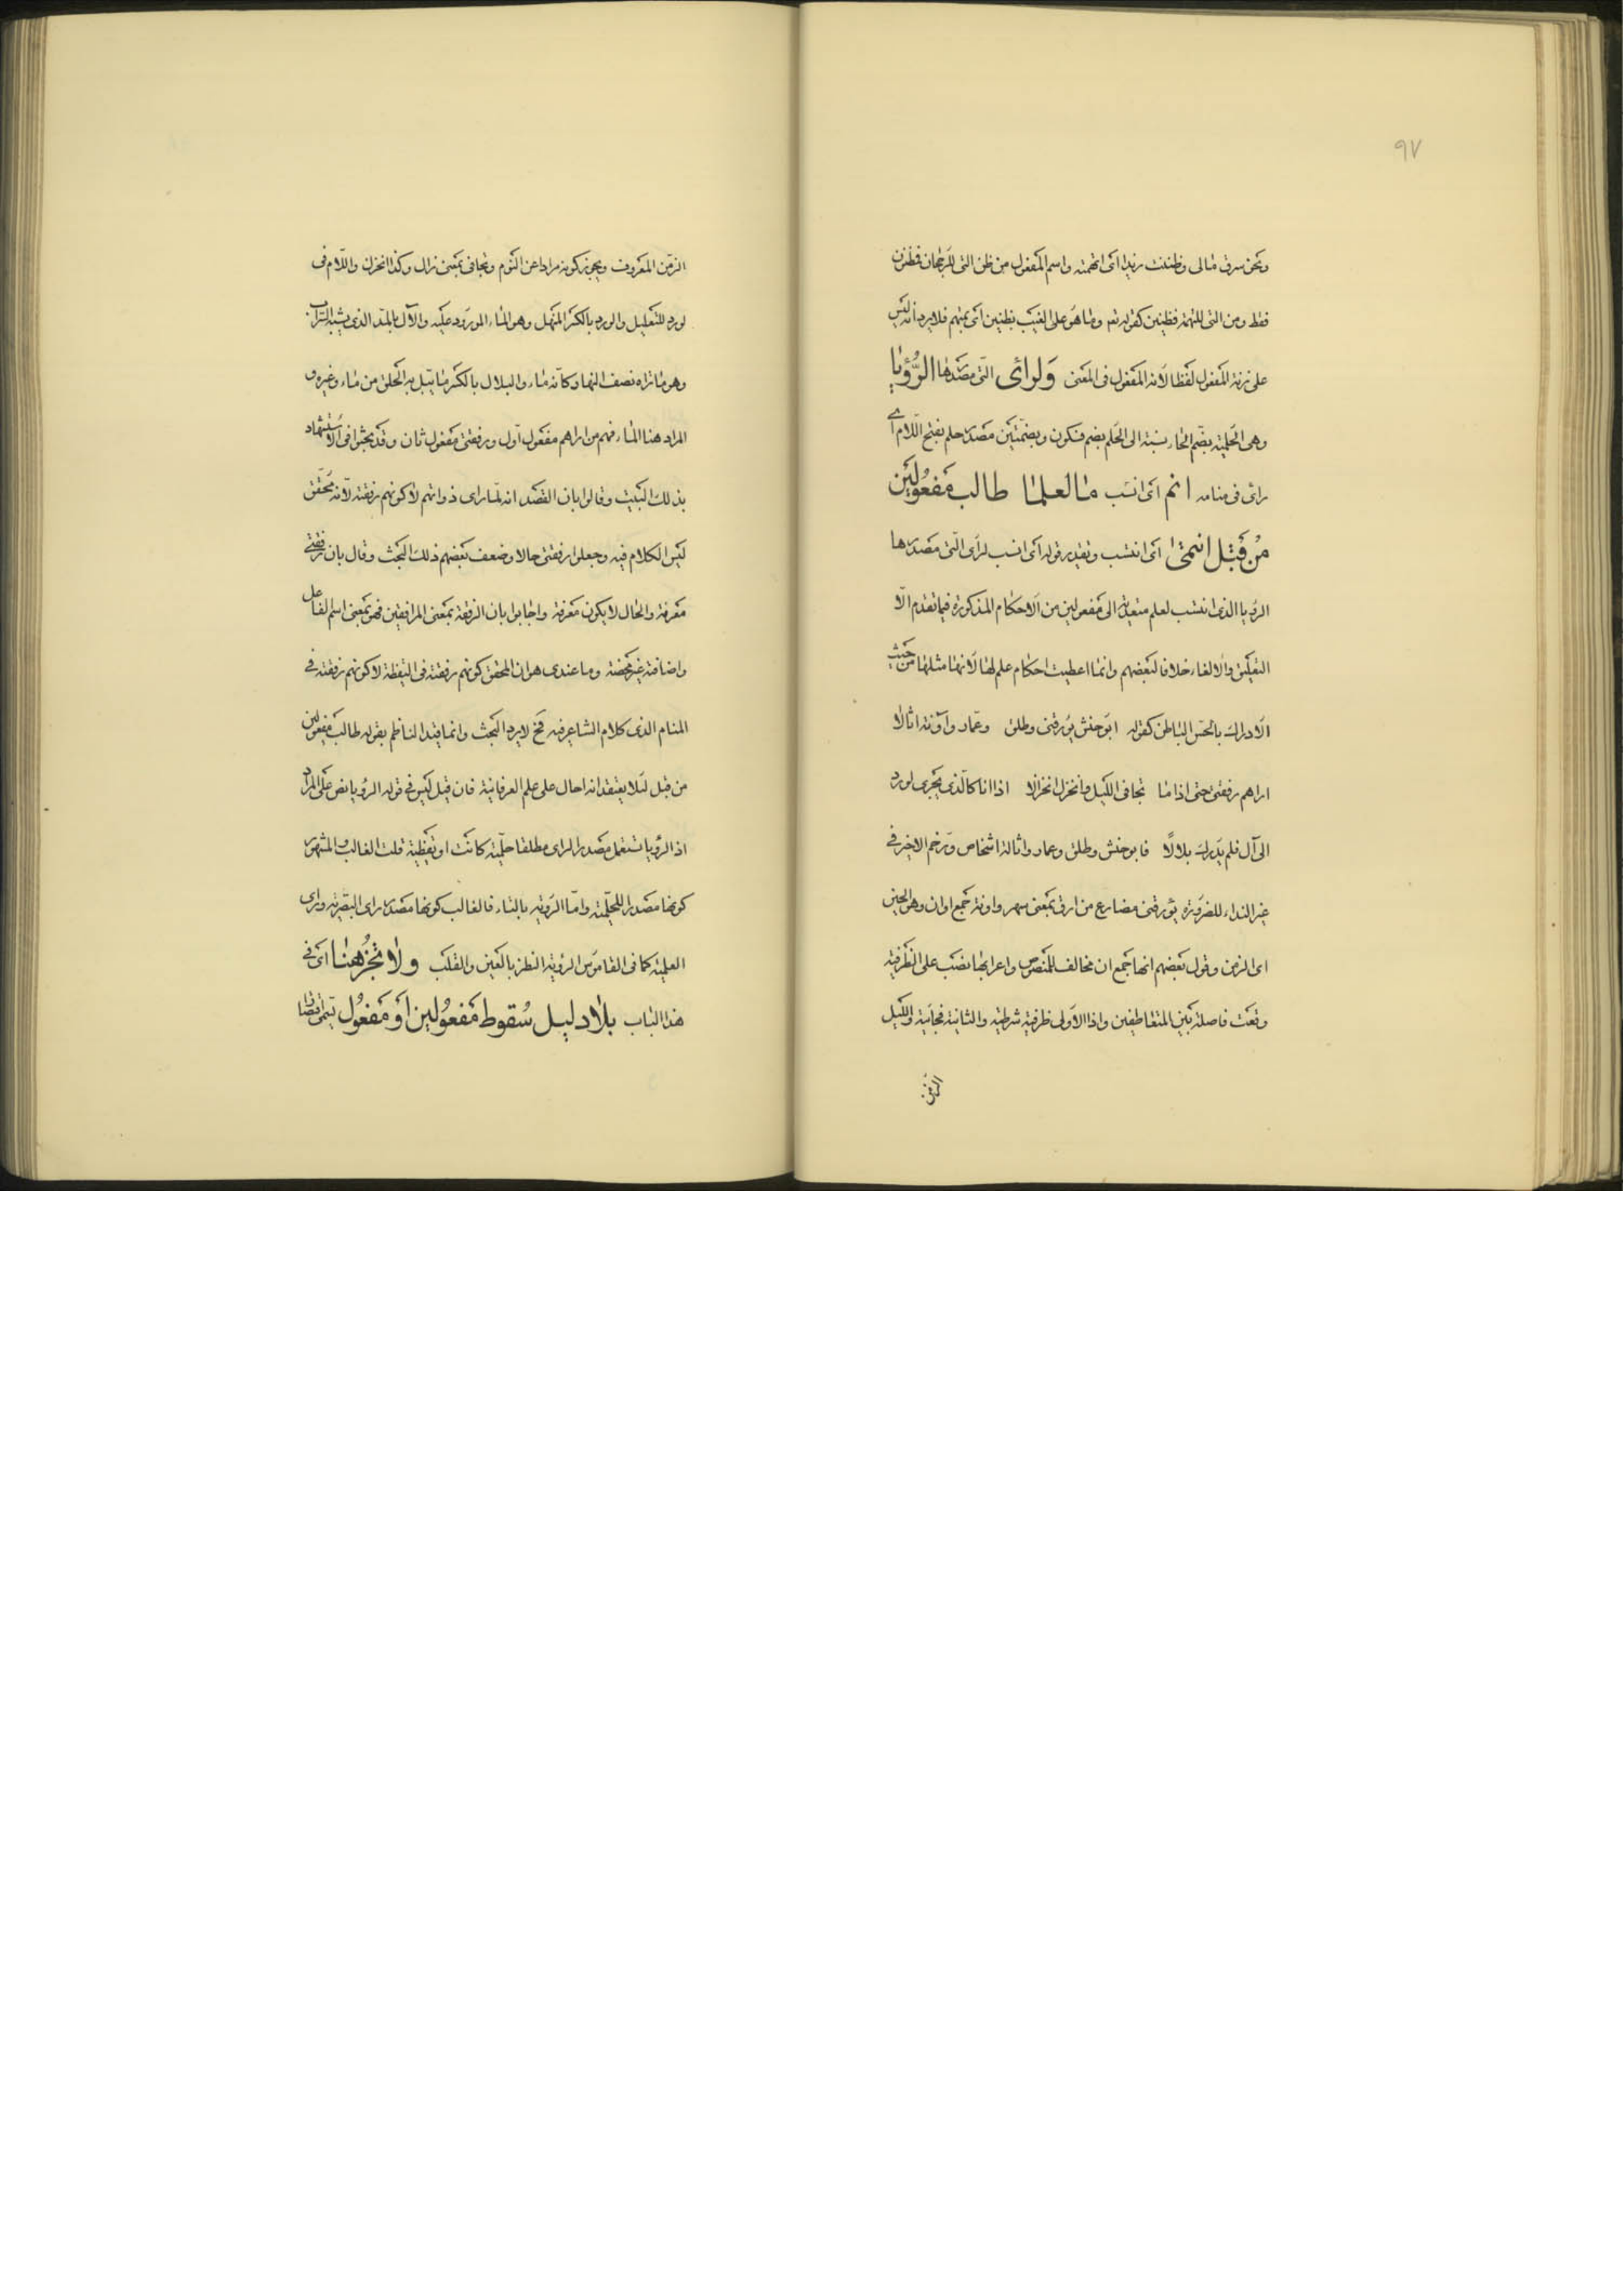 ٩٧
ونحن سرق مالى وظننت زيدا اى اتهمته واسم المفعول من ظن التى للرجحان فظنون
فقط ومن التى للتهمة فظنين كقوله تعه وما هو على الغيب بظنين اى بمتهم فلا يرد انه ليس
على زنة المفعول لفظا لانه المفعول فى المعنى ولرأى التى مصدرها الرُّؤيا
وهى الحلمية بضم الحاء نسبة الى الحلم بضم فسكون وبضمتين مصدر حلم بفتح اللام اى
راى فى منامه انم اى انسب ما لعلما طالب مفعولين
من قبل انتمى اى انتسب وتقدير قوله اى انسب لراى التى مصدرها
الرؤيا الذى انتسب لعلم متعدية الى مفعولين من الاحكام المذكورة فيما تقدم الا
التعليق والالغاء خلافا لبعضهم وانما اعطيت احكام علم لها لانها مثلها من حيث
الادراك بالحس الباطن كقوله ابو حنش يؤرقنى وطلق وعمار وآونة اثالا
اراهم رفقتى حتى اذا ما تجافى الليل وانخزل انخزالا اذا انا كالذى يجرى لورد
الى آل فلم يدرك بلالًا فابو حنش وطلق وعمار واثالة اشخاص ورخم الاخير فى
غير النداء للضرورة يؤرقنى مضارع من ارق بمعنى سهر واونة جمع اوان وهو الحين
اى الزمن وقول بعضهم انها جمع ان مخالف للنصوص واعرابها نصب على الظرفية
وقعت فاصلة بين المتعاطفين واذا الاولى ظرفية شرطية والثانية فجائية والليل
الزمن
الزمن المعروف ويجوز كونه مرادا عن النوم وتجافى بمعنى زال وكذا انخزل واللام فى
لورد للتعليل والورد بالكسر المنهل وهو الماء المورود عليه والآل بالمد الذى يشبه السراب
وهو ما تراه نصف النهار كانه ماء والبلال بالكسر ما يتبل به الحلق من ماء وغيره و
المراد هنا الماء فهم من اراهم مفعول اول ورفقتى مفعول ثان وقد بحثوا فى الاستشهاد
بذلك البيت وقالوا بان القصد انه لما راى ذواتهم لا كونهم رفقته لانه محقق
ليس الكلام فيه وجعلوا رفقتى حالا وضعف بعضهم ذلك البحث وقال بان رفقتى
معرفة والحال لا يكون معرفة واجابوا بان الرفقة بمعنى المرافقين فهو بمعنى اسم الفاعل
واضافته غير محضة وما عندى هو ان المحقق كونهم رفقته فى اليقظة لا كونهم رفقته فى
المنام الذى كلام الشاعر فيه فح لا يرد البحث وانما قيد الناظم بقوله طالب مفعولين
من قبل لئلا يعتقد انه احال على علم العرفانية فان قيل ليس فى قوله الرؤيا نص على المراد
اذ الرؤيا تستعمل مصدرا لراى مطلقا حلمية كانت او يقظية قلت الغالب والمشهور
كونها مصدرا للحلمية واما الرؤية بالتاء فالغالب كونها مصدر راى البصرية وراى
العلمية كما فى القاموس الرؤية النظر بالعين والقلب ولا تجز هنا اى فى
هذا الباب بلا دليل سقوط مفعولين او مفعول